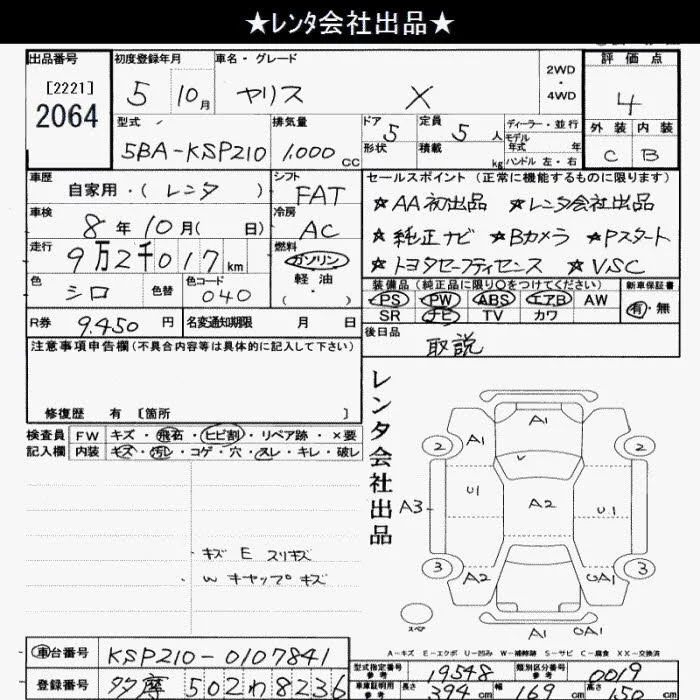 ★レンタ会社出品★
出品番号 初度登録年月 車名・グレード 2WD・4WD 評価点
[2221] 2064 5 10月 ヤリス X 4
型式 排気量 ドア 定員 ディーラー・並行
5BA-KSP210 1,000cc 5 5人 モデル年式 年
形状 積載 kg ハンドル 左・右
外装 内装
C B
車歴 シフト セールスポイント(正常に機能するものに限ります)
自家用・(レンタ) FAT ★AA初出品 ★レンタ会社出品
車検 冷房 ★純正ナビ ★Bカメラ ★Pスタート
8年10月(日) AC ★トヨタセーフティセンス ★VSC
走行 燃料
9万2千017km ガソリン
軽油
・( )
色 色替 色コード
シロ 040
装備品(純正品に限り○をつけてください) 新車保証書
PS PW ABS エアB AW 有・無
SR ナビ TV カワ
R券 9,450円 名変通知期限 月 日 後日品
取説
注意事項申告欄(不具合内容等は具体的に記入して下さい)
修復歴 有 [箇所 ]
検査員 FW キズ・飛石・ヒビ割・リペア跡・×要
記入欄 内装 キズ・汚レ・コゲ・穴・スレ・キレ・破レ
レンタ会社出品
A1
A1
2 2
U1 A2 U1
A3
3 3
A2 UA1
A1 UA1
スペア
キズ E スリキズ
W キャップキズ
A-キズ E-エクボ U-凹み W-補修跡 S-サビ C-腐食 XX-交換済
車台番号 KSP210-0107841 型式指定番号 参考 19548 類別区分番号 参考 0019
登録番号 多摩 502 わ 8236 車庫証明用 参考 長さ 394cm 幅 169cm 高さ 150cm